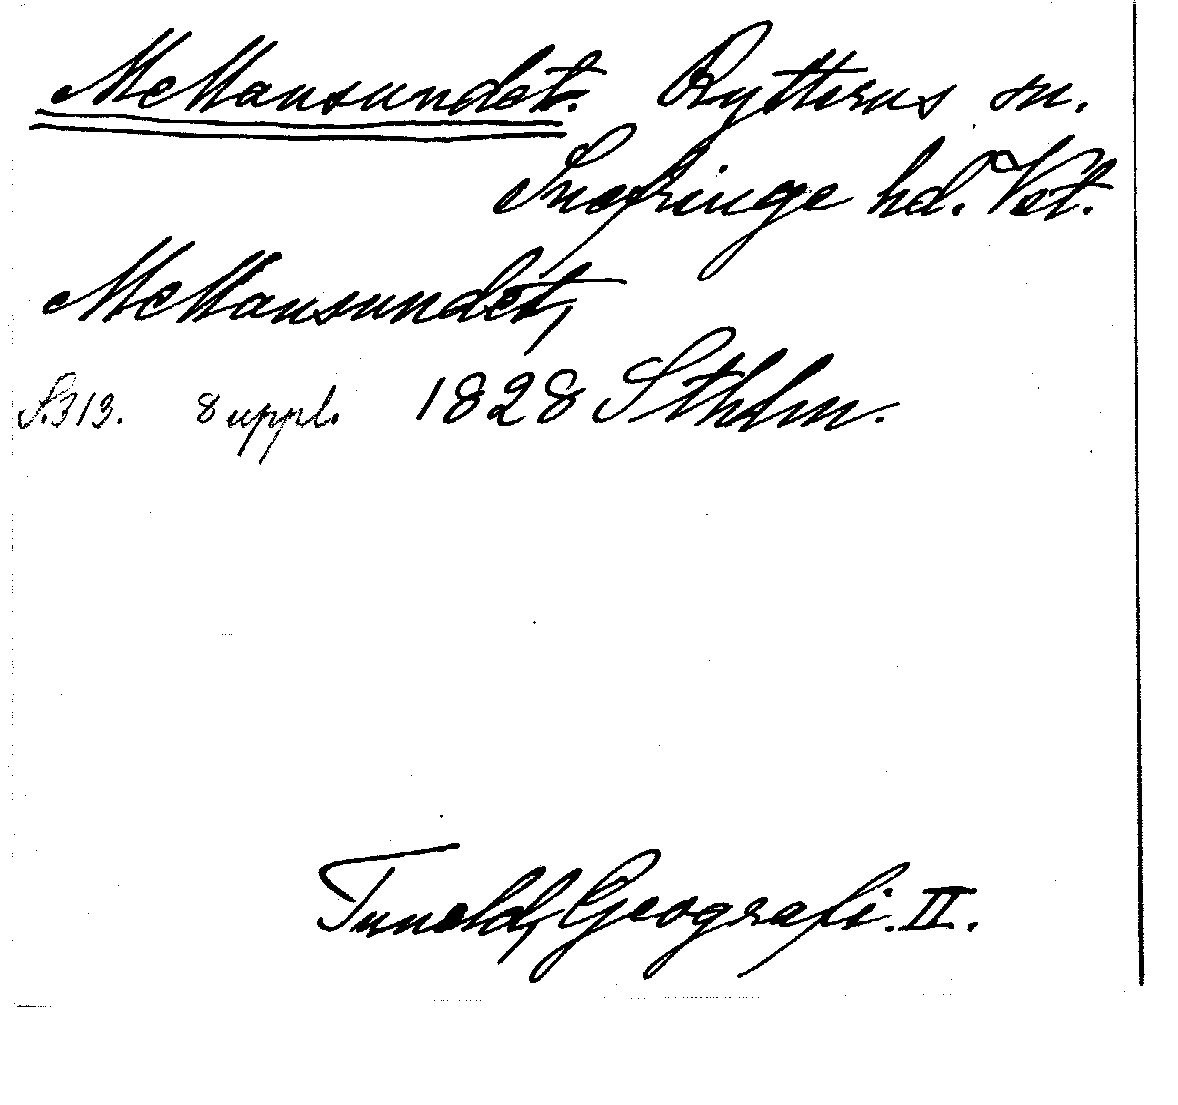 Mellansundet. Rytterns sn.
Snefringe hd. Vst.
Mellansundet,
S. 313. 8 uppl. 1828 Sthlm.
Tuneld, Geografi. II.